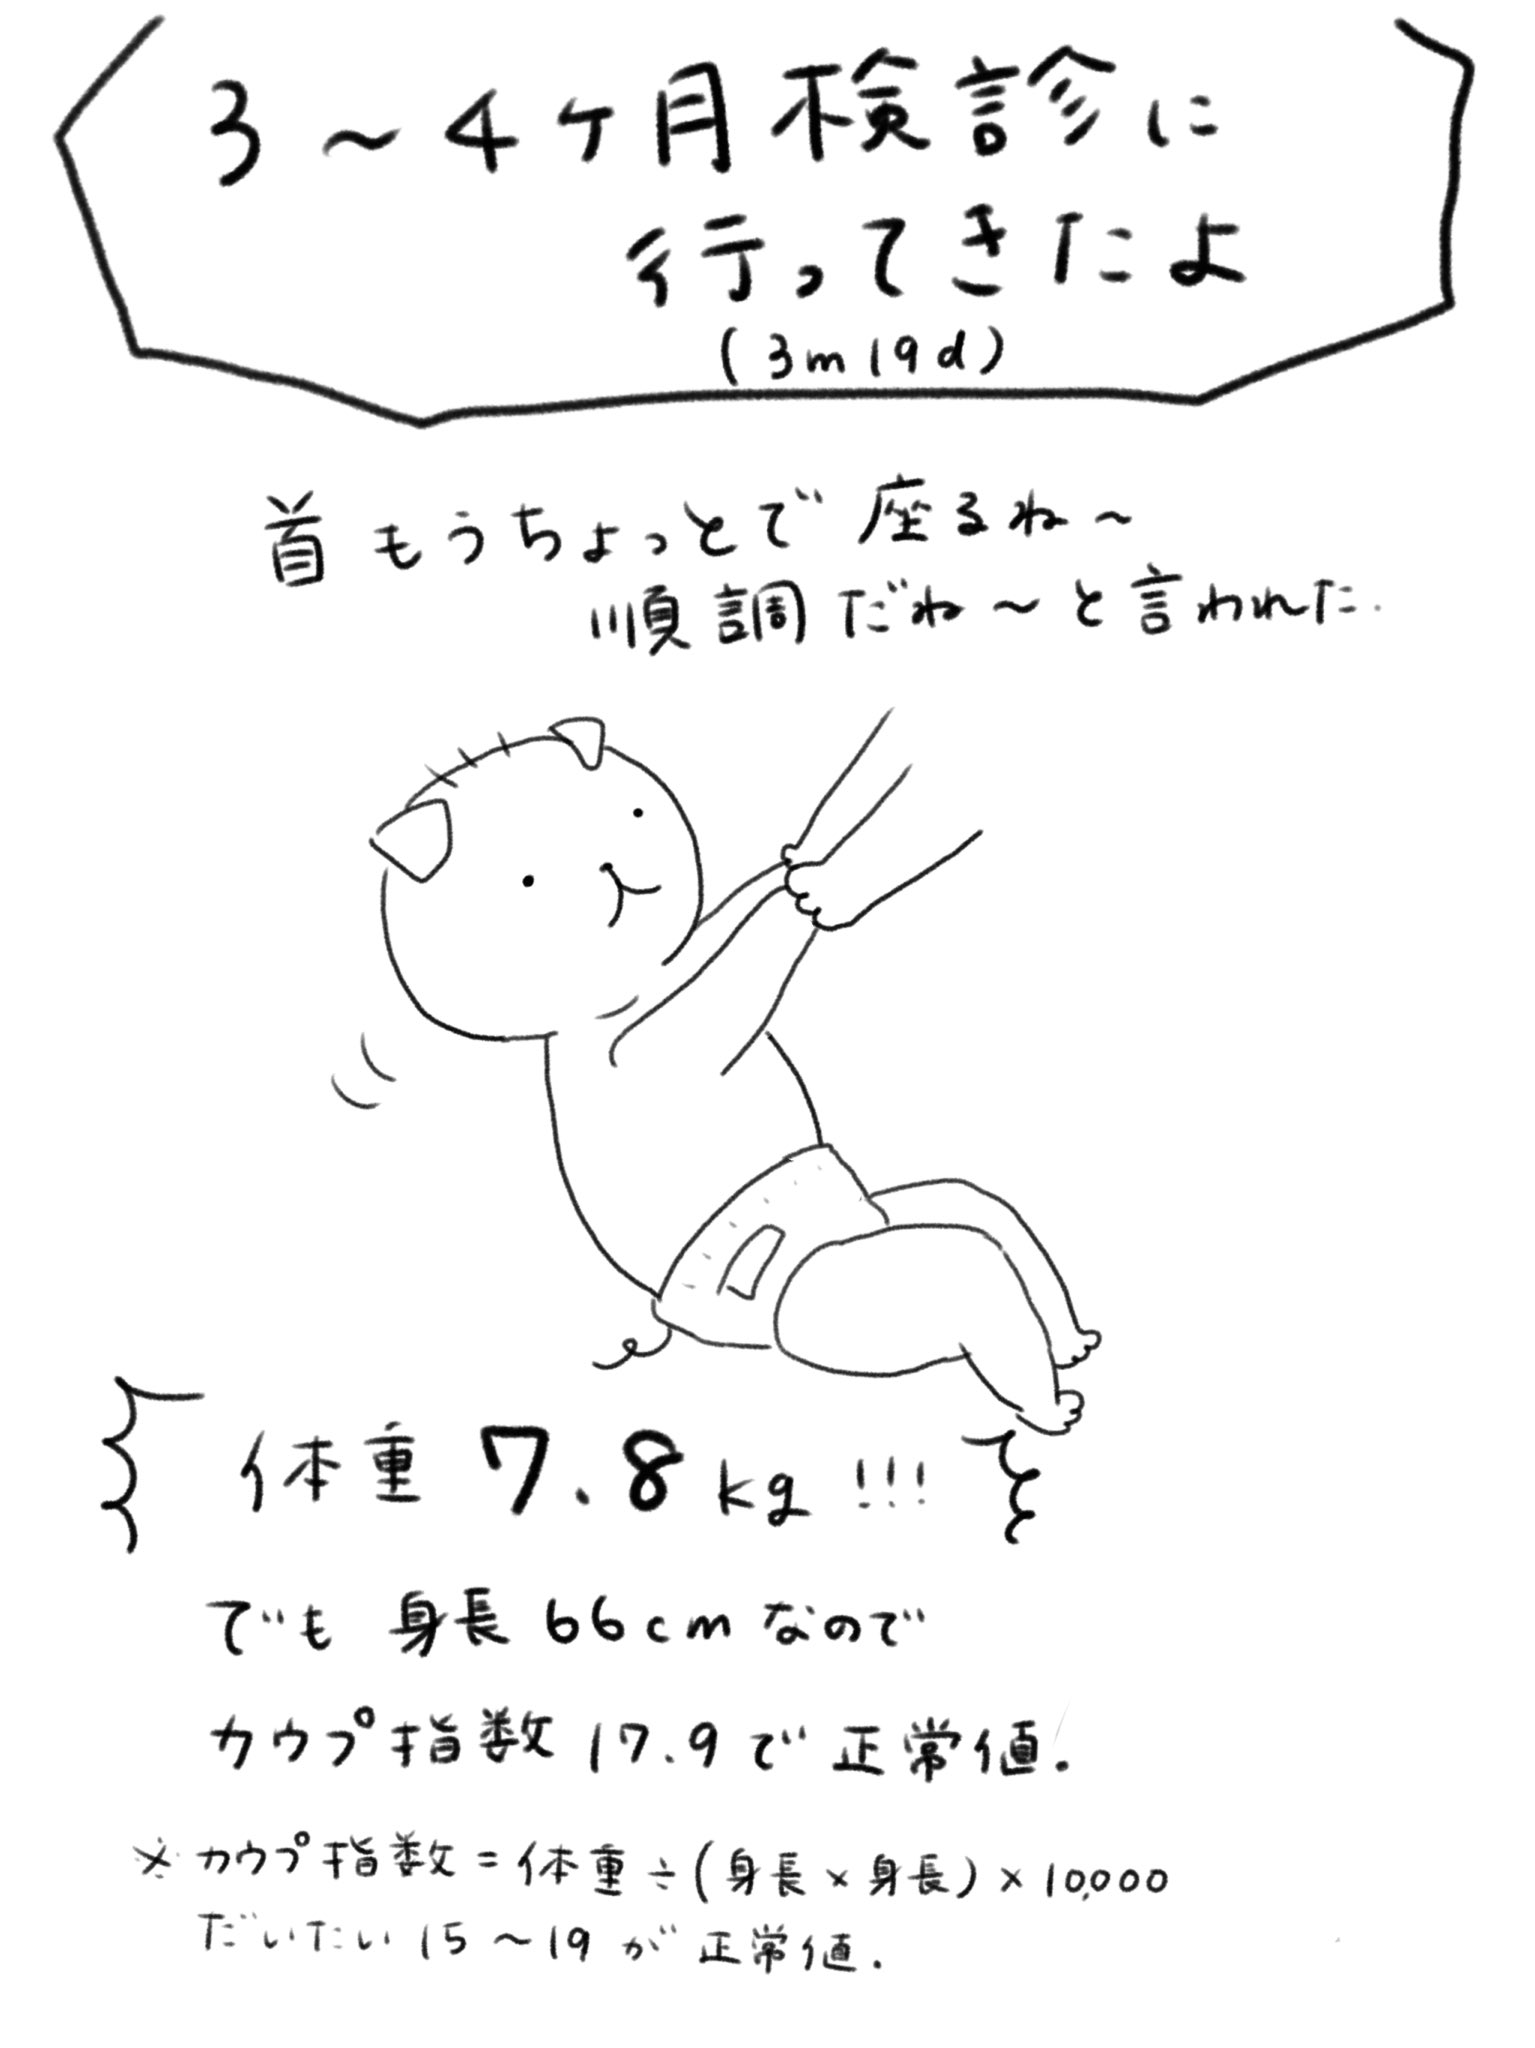 3～4ヶ月検診に
行ってきたよ
(3m19d)
首もうちょっとで座るね～
順調だね～と言われた.
体重7.8kg!!!
でも身長66cmなので
カウプ指数17.9で正常値.
※カウプ指数=体重÷(身長×身長)×10,000
だいたい15～19が正常値.